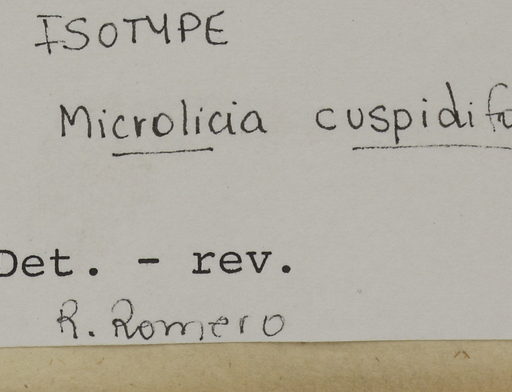 ISOTYPE
Microlicia cuspidifo
Det. - rev.
R. Romero